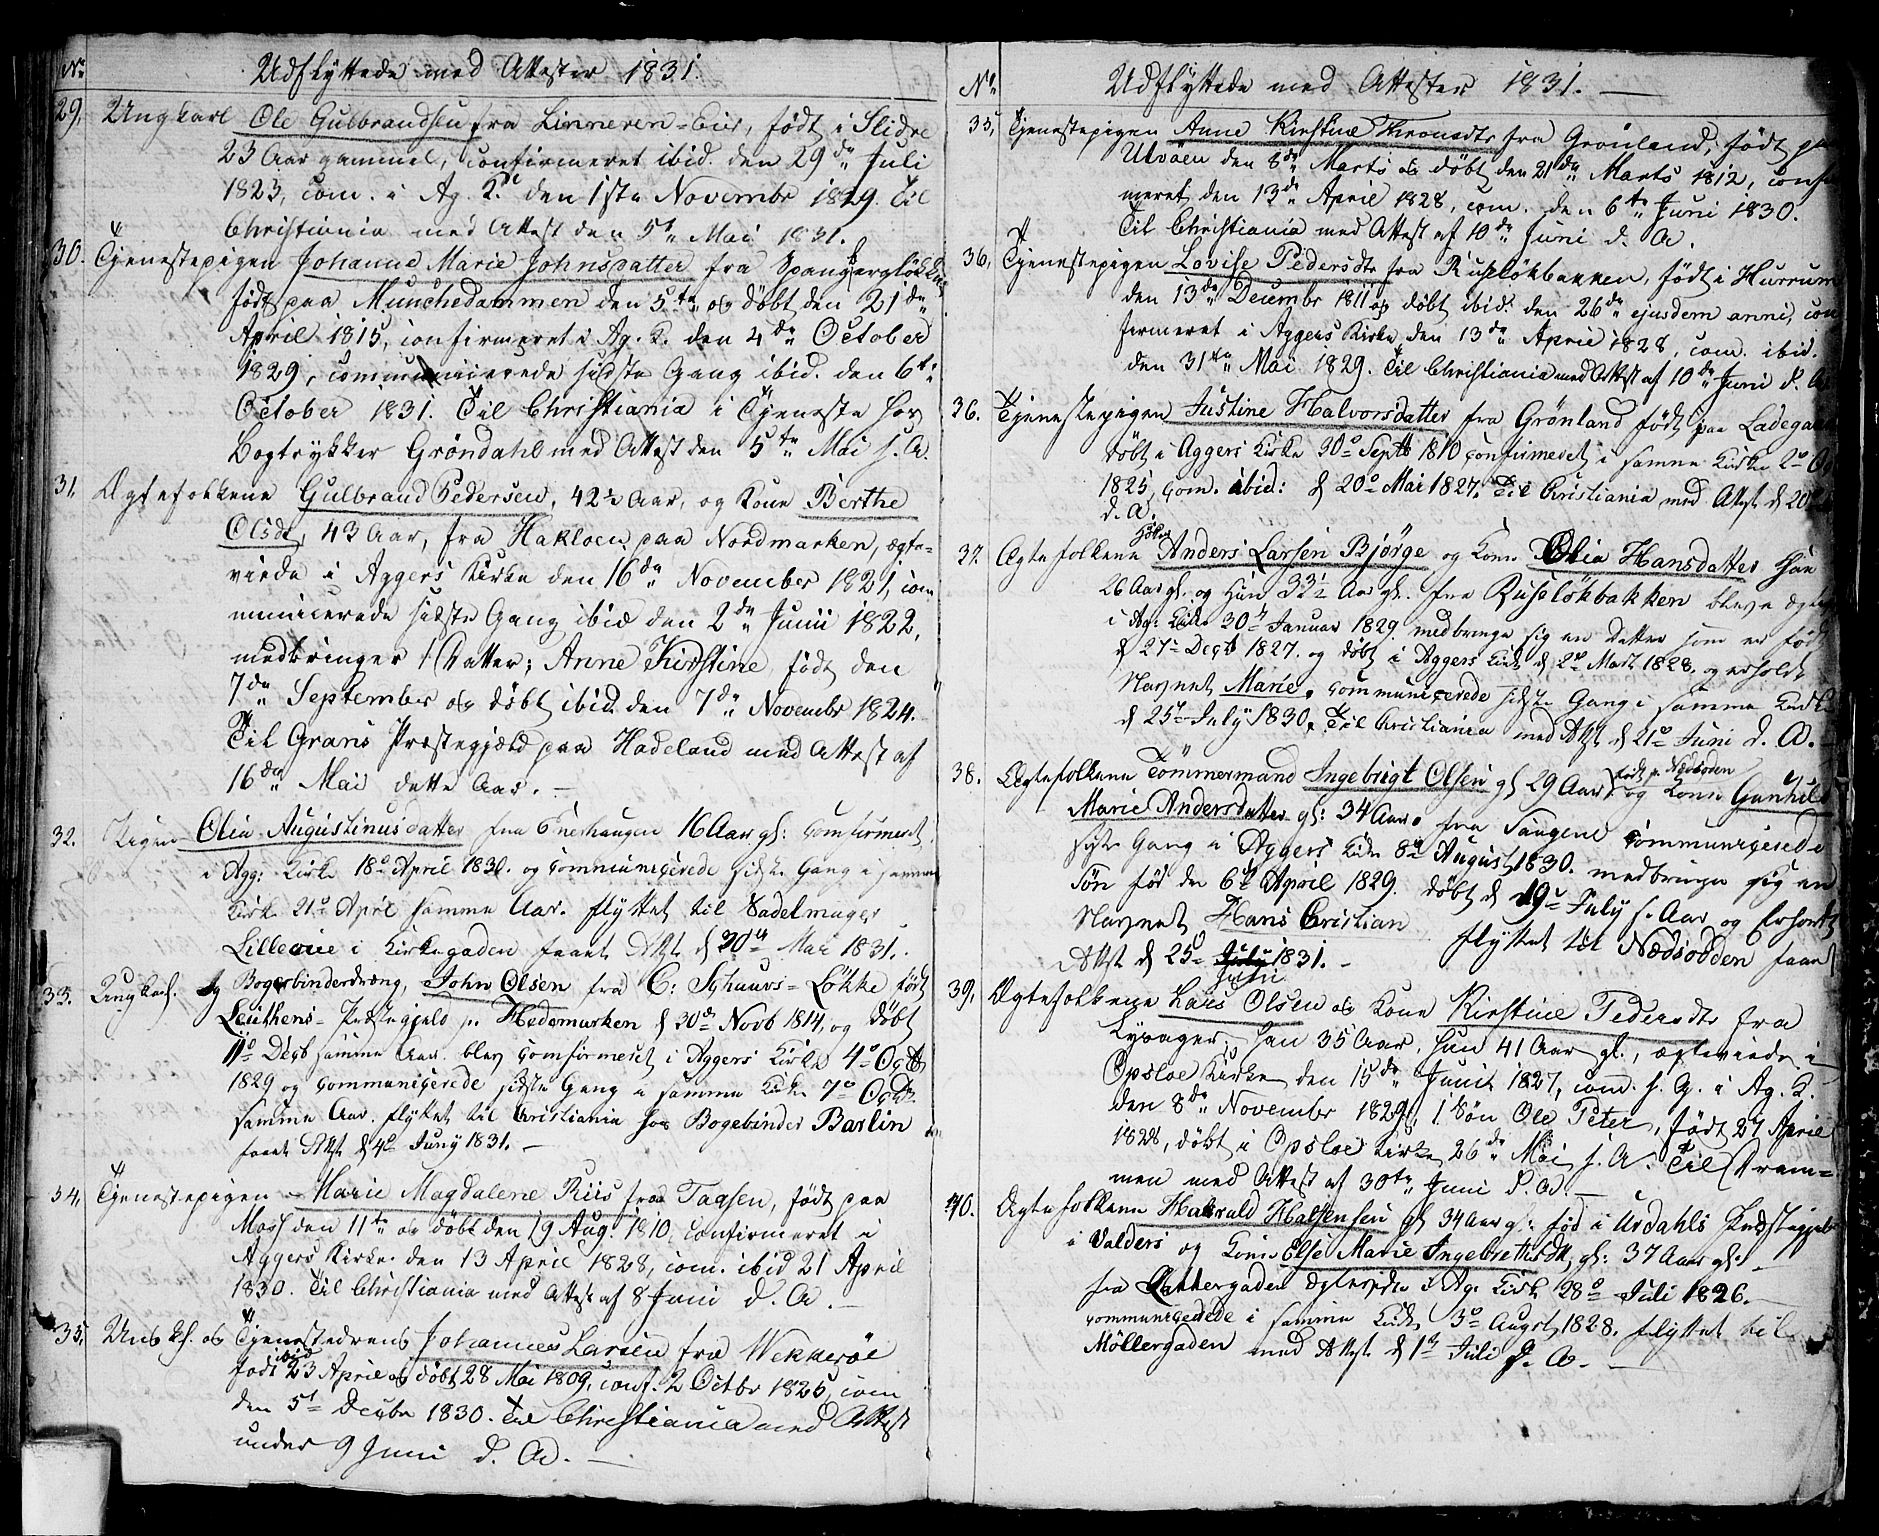 No Udflyttede med Attester 1831.
29. Ungkarl Ole Gulbrandsen fra Linneren-Eier, født i Slidre
23 Aar gammel, confirmeret ibid. den 29de Juli
1823, com. i Ag. K. den 1ste Novembr 1829. Til
Christiania med Attest den 5te Mai 1831.
30. Tjenestepigen Johanne Marie Johnsdatter fra Spangbergløkken
født paa Munchedammen den 5te og døbt den 21de
April 1815, confirmeret i Ag. K. den 4de October
1829, communicerede sidste Gang ibid. den 6te
October 1831. Til Christiania i Tjeneste hos
Bogtrykker Grøndahl med Attest den 5te Mai s. A.
31. Ægtefolkene Gulbrand Pedersen, 42½ Aar, og Kone Berthe
Olsdt, 43 Aar, fra Hakloen paa Nordmarken, ægte-
viede i Aggers Kirke den 16de November 1821, com
municerede sidste Gang ibid den 2de Junii 1822,
medbringer 1 Datter; Anne Kirstine født den
7de September og døbt ibid. den 7de Novembr 1824.
Til Grans Præstegjæld paa Hadeland med Attest af
16de Mai dette Aar. —
32. Pigen Olia Augustinusdatter fra Enerhaugen 16 Aar gl: Comfirmeret
i Agg: Kirke 18de April 1830. og Communicerede sidste Gang i samme
Kirke 21de April samme Aar. flyttet til Sadelmager
Lillevie i Kirkegaden faaet Attst d 30te Mai 1831.
33. Ungkarl. og Bogebinderdræng, John Olsen fra C: Schuuvs-Løkke født
Leuthens-Præstegjeld p. Hedemarken d 30de Novb 1814, og døbt
11te Decb samme Aar. blev Comfirmeret i Aggers Kirke 4de Octb
1829 og Communicerede sidste Gang i samme Kirke 7de Octbr
samme Aar. flyttet til Cristiania hos Bogebinder Barlin
faaet Attst d 4de Juny 1831. —
34. Tjenestepigen Marie Magdalene Riis fraa Taasen, født paa
Moss den 11te og døbt den 19 Aug. 1810, confirmeret i
Aggers Kirke den 13 April 1828, com. ibid 21 April
1830. Til Christiania med Attest af 8 Juni d. A. —
35. Ungk. og Tjenestedreng Johannes Larsen fra Wækkerøe
født ibid 23 April og døbt 28 Mai 1809, conf. 2 Octbr 1825, com
den 5te Decbr 1830. Til Christiania med Attest
under 9 Juni d. A. —
No Udflyttede med Attester 1831. —
35, Tjenestepigen Anne Kirstine Knudsdtr fra Grønland, født paa
Ulvøen den 8de Marts og døbt den 21de Marts 1812, confir
meret den 13de April 1828, com. den 6te Juni 1830.
Til Christiania med Attest af 10de Juni d. A.
36, Tjenestepigen Lovise Pedersdtr fra Rusløkbakken, født i Hurrum
den 13de Decembr 1811 og døbt ibid. den 26de ejusdem anni, con
firmeret i Aggers Kirke den 13de April 1828, com. ibid.
den 31te Mai 1829. Til Christiania med Attest af 10de Juni d. A.
36. Tjenestepigen Justine Halvorsdatter fra Grønland født paa Ladegaard
døbt i Aggers Kirke 30te Septb 1810 Confirmeret i samme Kirke 2de
1825, Com. ibid: d 20de Mai 1827. Til Cristiania med Attst d 20
d. A.
37. Ægtefolkene Anders Larsen Bjørge og Kone Olia Hansdatter Han
26 Aar gl. og Hun 33½ Aar gl. fra Rusløkbakken bleve Ægte
i Ag: Kirke 30te Januar 1829. medbringe sig en datter som er født
d 27de Decb 1827. og døbt i Aggers Kirke d 2de Mart 1828, og erholdt
Navnet Marie. Communicerede sidste Gang i samme Kirke
d 25de July 1830. Til Cristiania med Attst d 21de Juni d. A. —
38. Ægtefolkene Tömmermand Ingebrigt Olsen gl 29 Aar født p. Nædsoden og Kone Gunhild
Marie Andersdatter gl: 34 Aar. fra Sangene Communicerede
sidste Gang i Aggers Kirke 8de August 1830. medbringe sig en
Søn fød den 6te April 1829. døbt d 19de July s. Aar og Erholdt
Navnet Hans Cristian flyttet til Nædsodden faaet
Attst d 25de Juni 1831. —
39, Ægtefolkene Lars Olsen og Kone Kirstine Pedersdtr fra
Ryvager, han 35 Aar, hun 41 Aar gl., ægteviede i
Opsloe Kirke den 15de Junii 1827, com. s. G. i Ag. K.
den 8de November 1829, 1 Søn Ole Peter, født 27 April
1828, døbt i Opsloe Kirke 26de Mai s. A. Til Dram-
men med Attest af 30te Juni d. A. —
40. Ægtefolkene Harald Halsensen gl 34 Aar gl: fød i Urdahls Præstegjeld
i Valders og Kone Else Marie Ingebretsdtr gl: 37 Aar gl. —
fra Rattergaden Ægteviede i Ag. Kirke 28de Juli 1826. —
Communicerede i samme Kirke 3de Augst 1828. flyttet til
Möllergaden med Attst d 1te Juli d. A. —